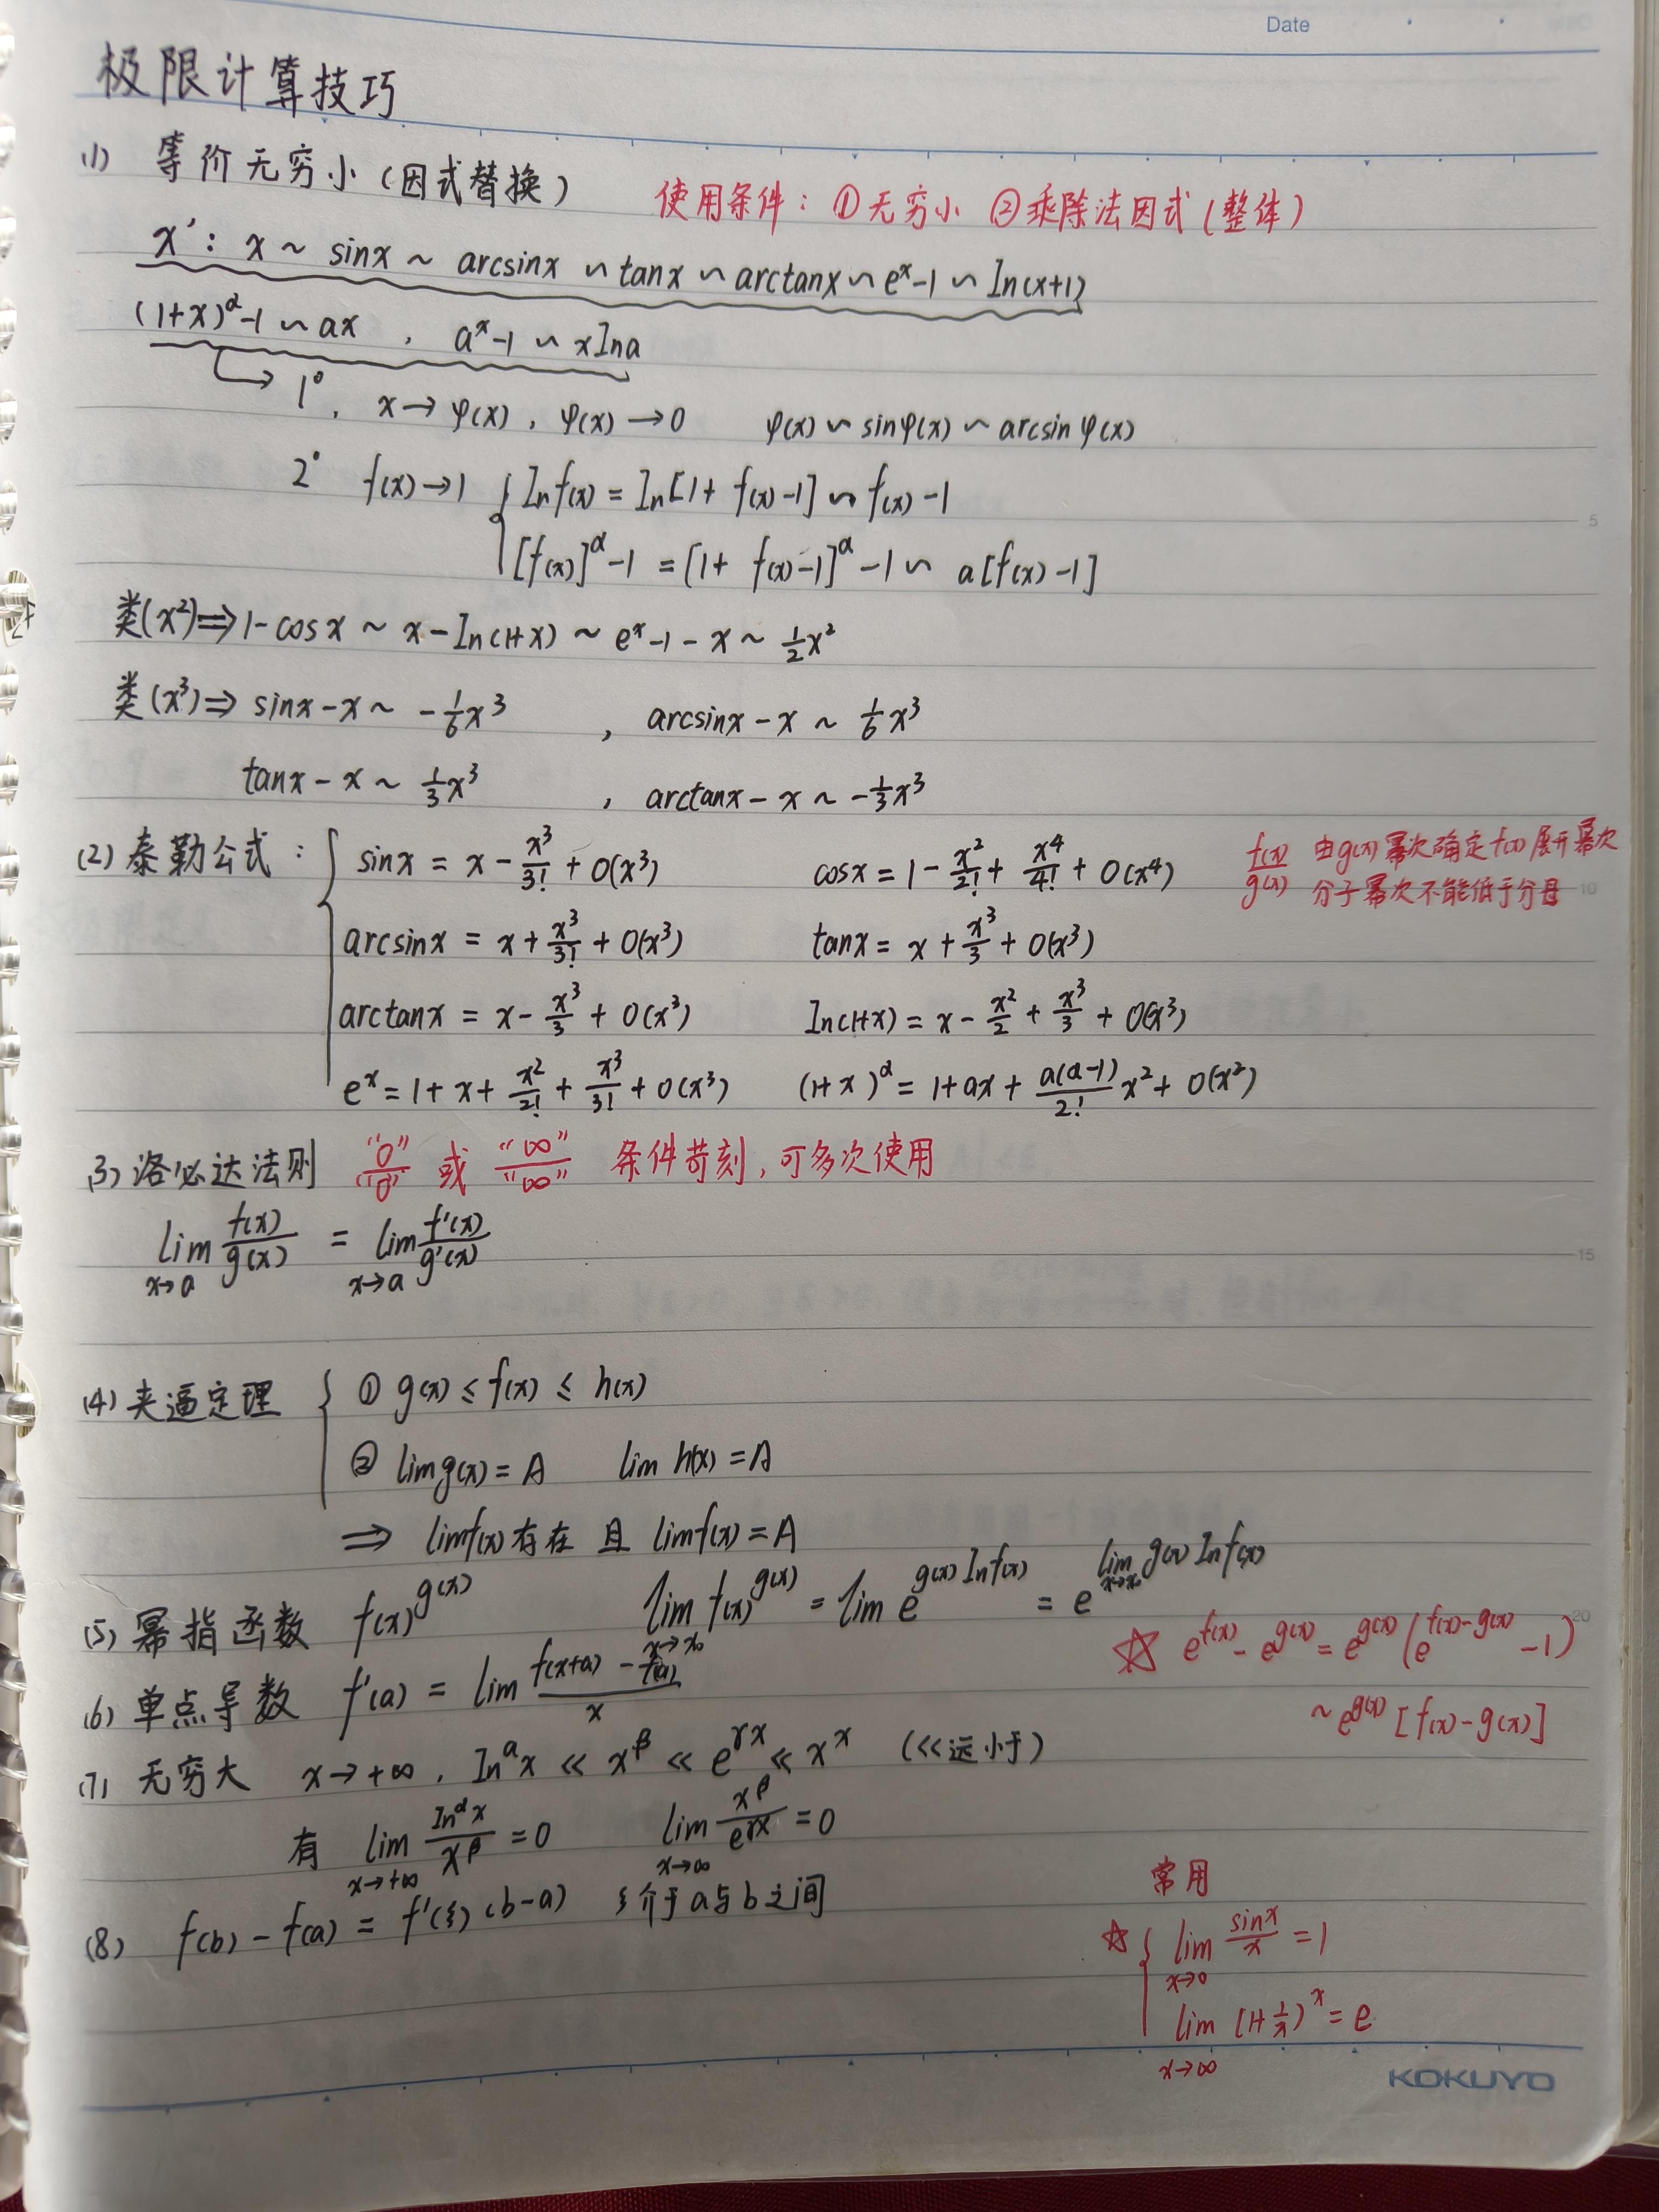 Date
极限计算技巧
(1) 等价无穷小（因式替换） 使用条件：①无穷小 ②乘除法因式（整体）
x': x ~ sinx ~ arcsinx ~ tanx ~ arctanx ~ e^x-1 ~ In(x+1)
(1+x)^α-1 ~ ax , a^x-1 ~ xIna
1°, x→φ(x), φ(x)→0 φ(x) ~ sinφ(x) ~ arcsinφ(x)
2° f(x)→1 { Inf(x) = In[1+ f(x)-1] ~ f(x)-1
[f(x)]^α-1 = [1+ f(x)-1]^α-1 ~ a[f(x)-1]
类(x²)⇒1-cosx ~ x-In(1+x) ~ e^x-1-x ~ 1/2x²
类(x³)⇒ sinx-x ~ -1/6x³ , arcsinx-x ~ 1/6x³
tanx-x ~ 1/3x³ , arctanx-x ~ -1/3x³
(2) 泰勒公式: { sinx = x - x³/3! + o(x³) cosx = 1 - x²/2! + x⁴/4! + o(x⁴) f(x)/g(x) 由g(x)幂次确定f(x)展开幂次
分子幂次不能低于分母
arcsinx = x + x³/3! + o(x³) tanx = x + x³/3 + o(x³)
arctanx = x - x³/3 + o(x³) In(1+x) = x - x²/2 + x³/3 + o(x³)
e^x = 1 + x + x²/2! + x³/3! + o(x³) (1+x)^α = 1+ax + a(a-1)/2! x² + o(x²)
(3) 洛必达法则 "0"/"0" 或 "∞"/"∞" 条件苛刻，可多次使用
lim x→a f(x)/g(x) = lim x→a f'(x)/g'(x)
(4) 夹逼定理 { ① g(x) ≤ f(x) ≤ h(x)
② limg(x) = A lim h(x) = A
⇒ limf(x)存在 且 limf(x) = A
(5) 幂指函数 f(x)^g(x) lim x→x₀ f(x)^g(x) = lim e^(g(x)Inf(x)) = e^(lim x→x₀ g(x)Inf(x))
☆ e^f(x) - e^g(x) = e^g(x) (e^(f(x)-g(x)) -1)
(6) 单点导数 f'(a) = lim (f(x+a) - f(a))/x
~ e^g(x) [f(x)-g(x)]
(7) 无穷大 x→+∞, In^αx ≪ x^β ≪ e^γx ≪ x^x (≪远小于)
有 lim x→+∞ In^αx/x^β = 0 lim x→∞ x^β/e^γx = 0
(8) f(b) - f(a) = f'(ξ)(b-a) ξ介于a与b之间
常用
☆ { lim x→0 sinx/x = 1
lim x→∞ (1+1/x)^x = e
5
10
15
20
KOKUYO